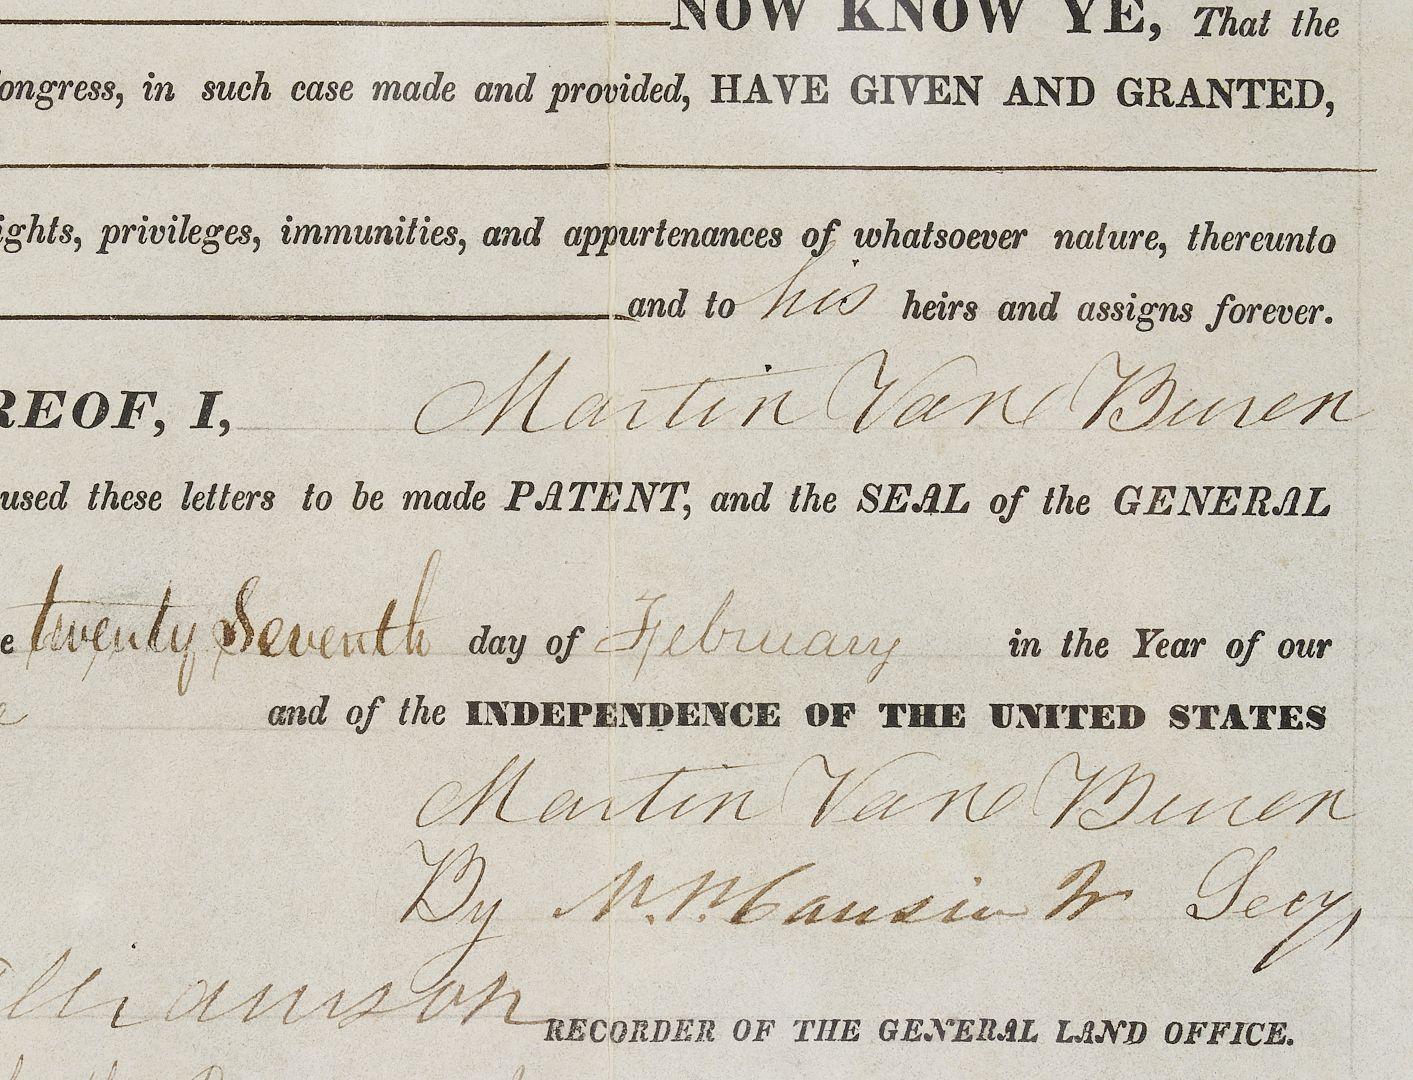 NOW KNOW YE, That the
Congress, in such case made and provided, HAVE GIVEN AND GRANTED,
ights, privileges, immunities, and appurtenances of whatsoever nature, thereunto
and to his heirs and assigns forever.
REOF, I, Martin Van Buren
used these letters to be made PATENT, and the SEAL of the GENERAL
e twenty Seventh day of February in the Year of our
and of the INDEPENDENCE OF THE UNITED STATES
Martin Van Buren
By Secy,
lliamson
RECORDER OF THE GENERAL LAND OFFICE.